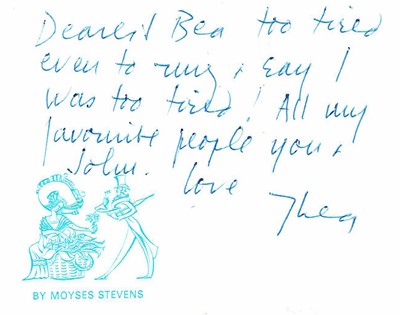 Dearest Bea too tired
even to ring + say I
was too tired! All my
favourite people you +
John. Love
Thea
BY MOYSES STEVENS